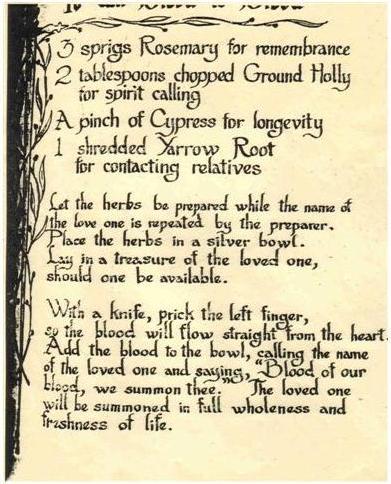 To Call Blood to Blood
3 sprigs Rosemary for remembrance
2 tablespoons chopped Ground Holly
for spirit calling
A pinch of Cypress for longevity
1 shredded Yarrow Root
for contacting relatives
Let the herbs be prepared while the name of
the love one is repeated by the preparer.
Place the herbs in a silver bowl.
Lay in a treasure of the loved one,
should one be available.
With a knife, prick the left finger,
so the blood will flow straight from the heart.
Add the blood to the bowl, calling the name
of the loved one and saying, "Blood of our
blood, we summon thee." The loved one
will be summoned in full wholeness and
freshness of life.